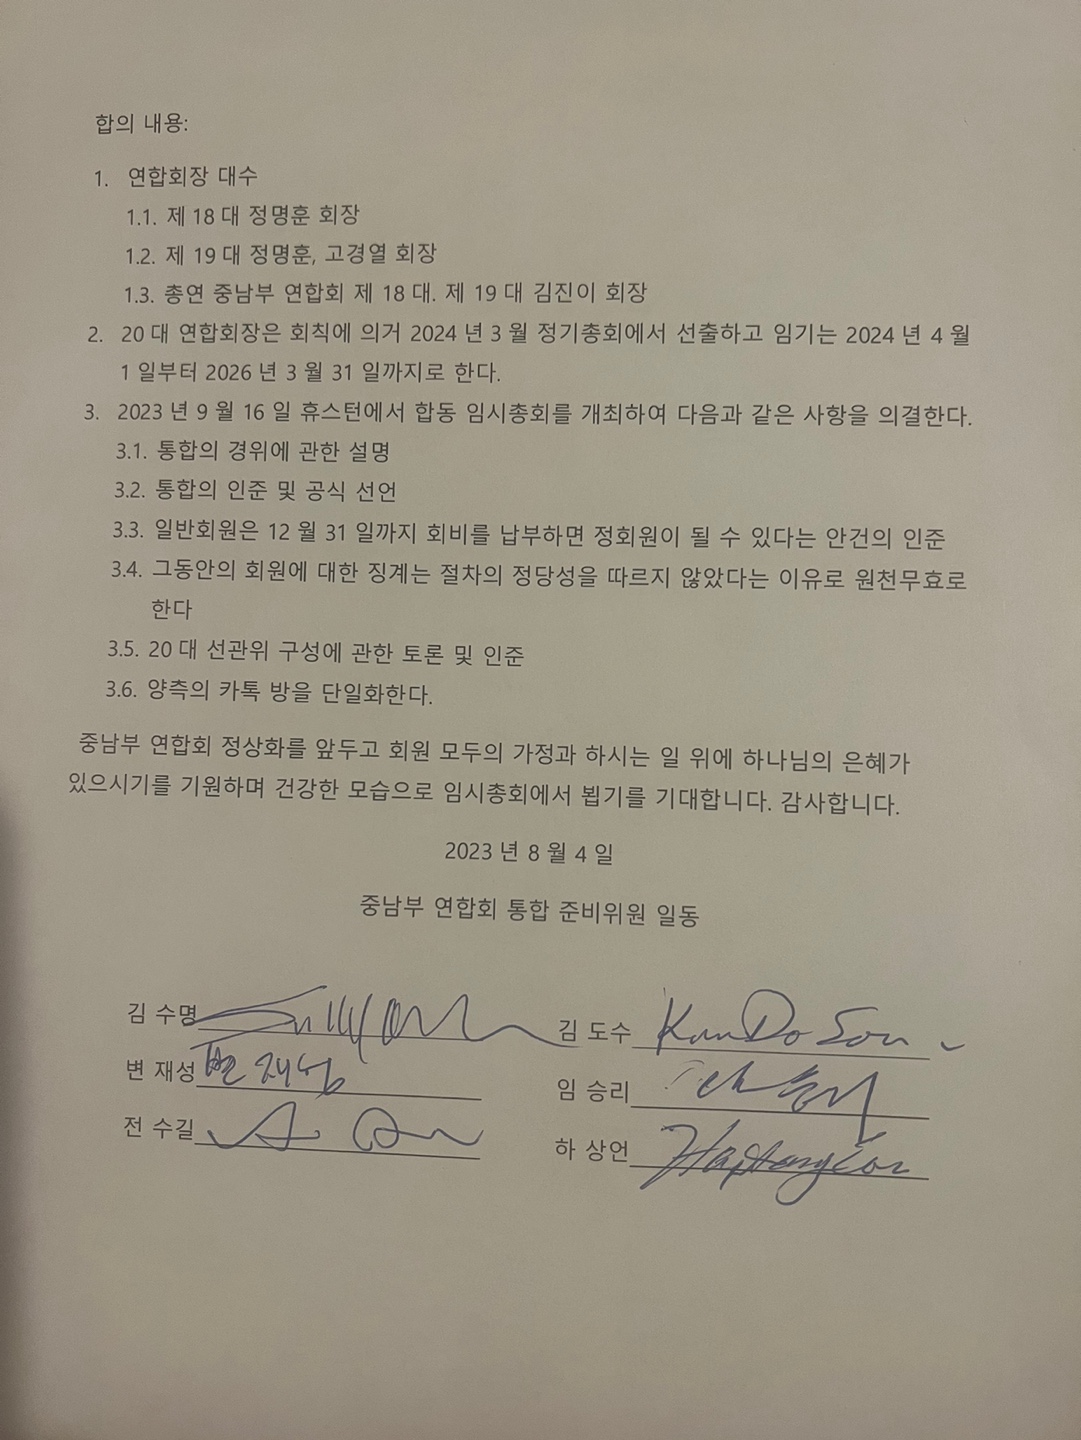 합의 내용:
1. 연합회장 대수
1.1. 제 18 대 정명훈 회장
1.2. 제 19 대 정명훈, 고경열 회장
1.3. 총연 중남부 연합회 제 18 대. 제 19 대 김진이 회장
2. 20 대 연합회장은 회칙에 의거 2024 년 3 월 정기총회에서 선출하고 임기는 2024 년 4 월
1 일부터 2026 년 3 월 31 일까지로 한다.
3. 2023 년 9 월 16 일 휴스턴에서 합동 임시총회를 개최하여 다음과 같은 사항을 의결한다.
3.1. 통합의 경위에 관한 설명
3.2. 통합의 인준 및 공식 선언
3.3. 일반회원은 12 월 31 일까지 회비를 납부하면 정회원이 될 수 있다는 안건의 인준
3.4. 그동안의 회원에 대한 징계는 절차의 정당성을 따르지 않았다는 이유로 원천무효로
한다
3.5. 20 대 선관위 구성에 관한 토론 및 인준
3.6. 양측의 카톡 방을 단일화한다.
중남부 연합회 정상화를 앞두고 회원 모두의 가정과 하시는 일 위에 하나님의 은혜가
있으시기를 기원하며 건강한 모습으로 임시총회에서 뵙기를 기대합니다. 감사합니다.
2023 년 8 월 4 일
중남부 연합회 통합 준비위원 일동
김 수명 김 도수
변 재성 변 재성 임 승리
전 수길 하 상언